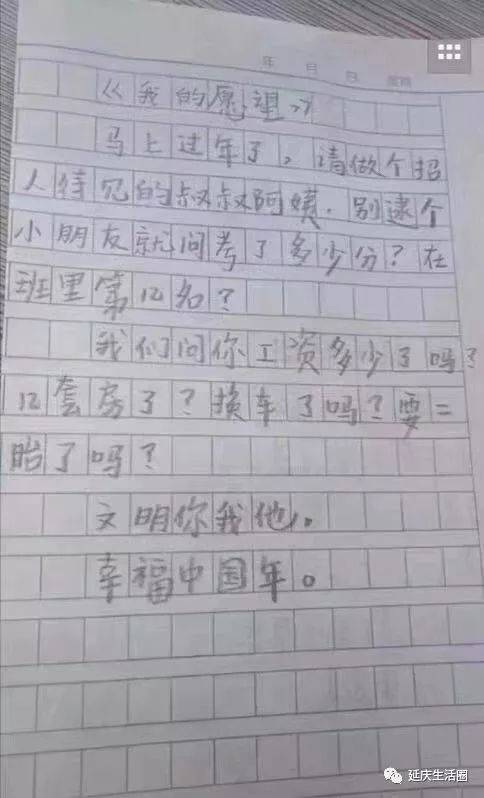 年 月 日 星期
《我的愿望》
马上过年了，请做个招
人待见的叔叔阿姨．别逮个
小朋友就问考了多少分？在
班里第几名？
我们问你工资多少了吗？
几套房了？换车了吗？要二
胎了吗？
文明你我他。
幸福中国年。
延庆生活圈